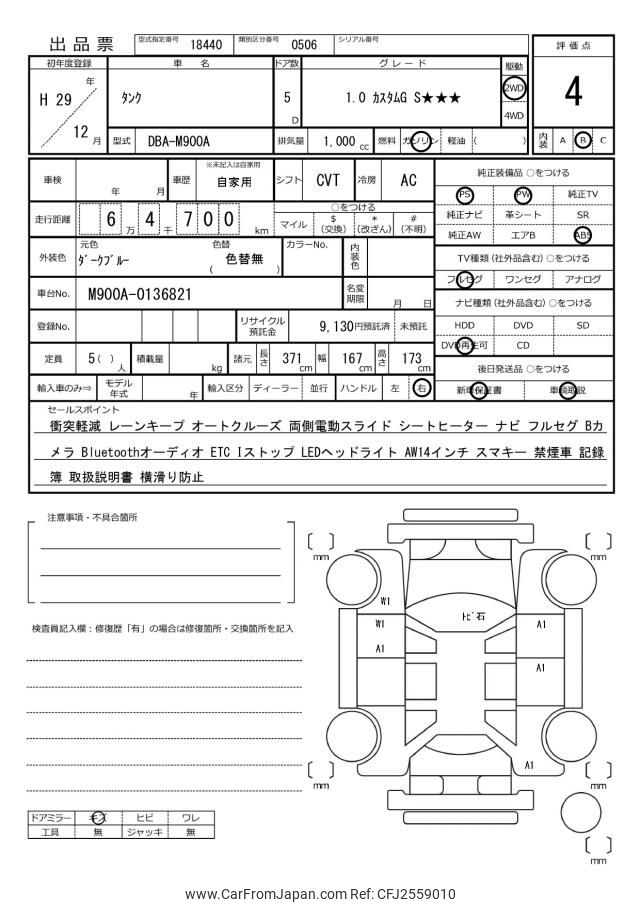 出品票 型式指定番号 18440 類別区分番号 0506 シリアル番号
評価点
4
内装 A B C
初年度登録 車名 ドア数 グレード 駆動
H 29 年 12 月
タンク
5 D
1.0 カスタムG S★★★
2WD
4WD
型式 DBA-M900A 排気量 1,000 cc 燃料 ガソリン 軽油 ( )
車検 年 月 車歴 ※未記入は自家用 自家用 シフト CVT 冷房 AC
走行距離 6 万 4 千 7 0 0 km
○をつける
マイル $(交換) *(改ざん) #(不明)
外装色 元色 ダークブルー 色替 ( 色替無 ) カラーNo. 内装色
車台No. M900A-0136821 名変期限 月 日
登録No. リサイクル預託金 9,130円預託済 未預託
定員 5( )人 積載量 kg 諸元 長さ 371 cm 幅 167 cm 高さ 173 cm
輸入車のみ⇒ モデル年式 年 輸入区分 ディーラー 並行 ハンドル 左 右
純正装備品 ○をつける
PS PW 純正TV
純正ナビ 革シート SR
純正AW エアB ABS
TV種類(社外品含む) ○をつける
フルセグ ワンセグ アナログ
ナビ種類(社外品含む) ○をつける
HDD DVD SD
DVD再生可 CD
後日発送品 ○をつける
新車保証書 車輌取説
セールスポイント
衝突軽減 レーンキープ オートクルーズ 両側電動スライド シートヒーター ナビ フルセグ Bカ
メラ Bluetoothオーディオ ETC Iストップ LEDヘッドライト AW14インチ スマキー 禁煙車 記録
簿 取扱説明書 横滑り防止
注意事項・不具合箇所
検査員記入欄：修復歴「有」の場合は修復箇所・交換箇所を記入
mm
mm
W1
W1
A1
トビ石
A1
A1
A1
mm
mm
mm
ドアミラー キズ ヒビ ワレ
工具 無 ジャッキ 無
www.CarFromJapan.com Ref: CFJ2559010